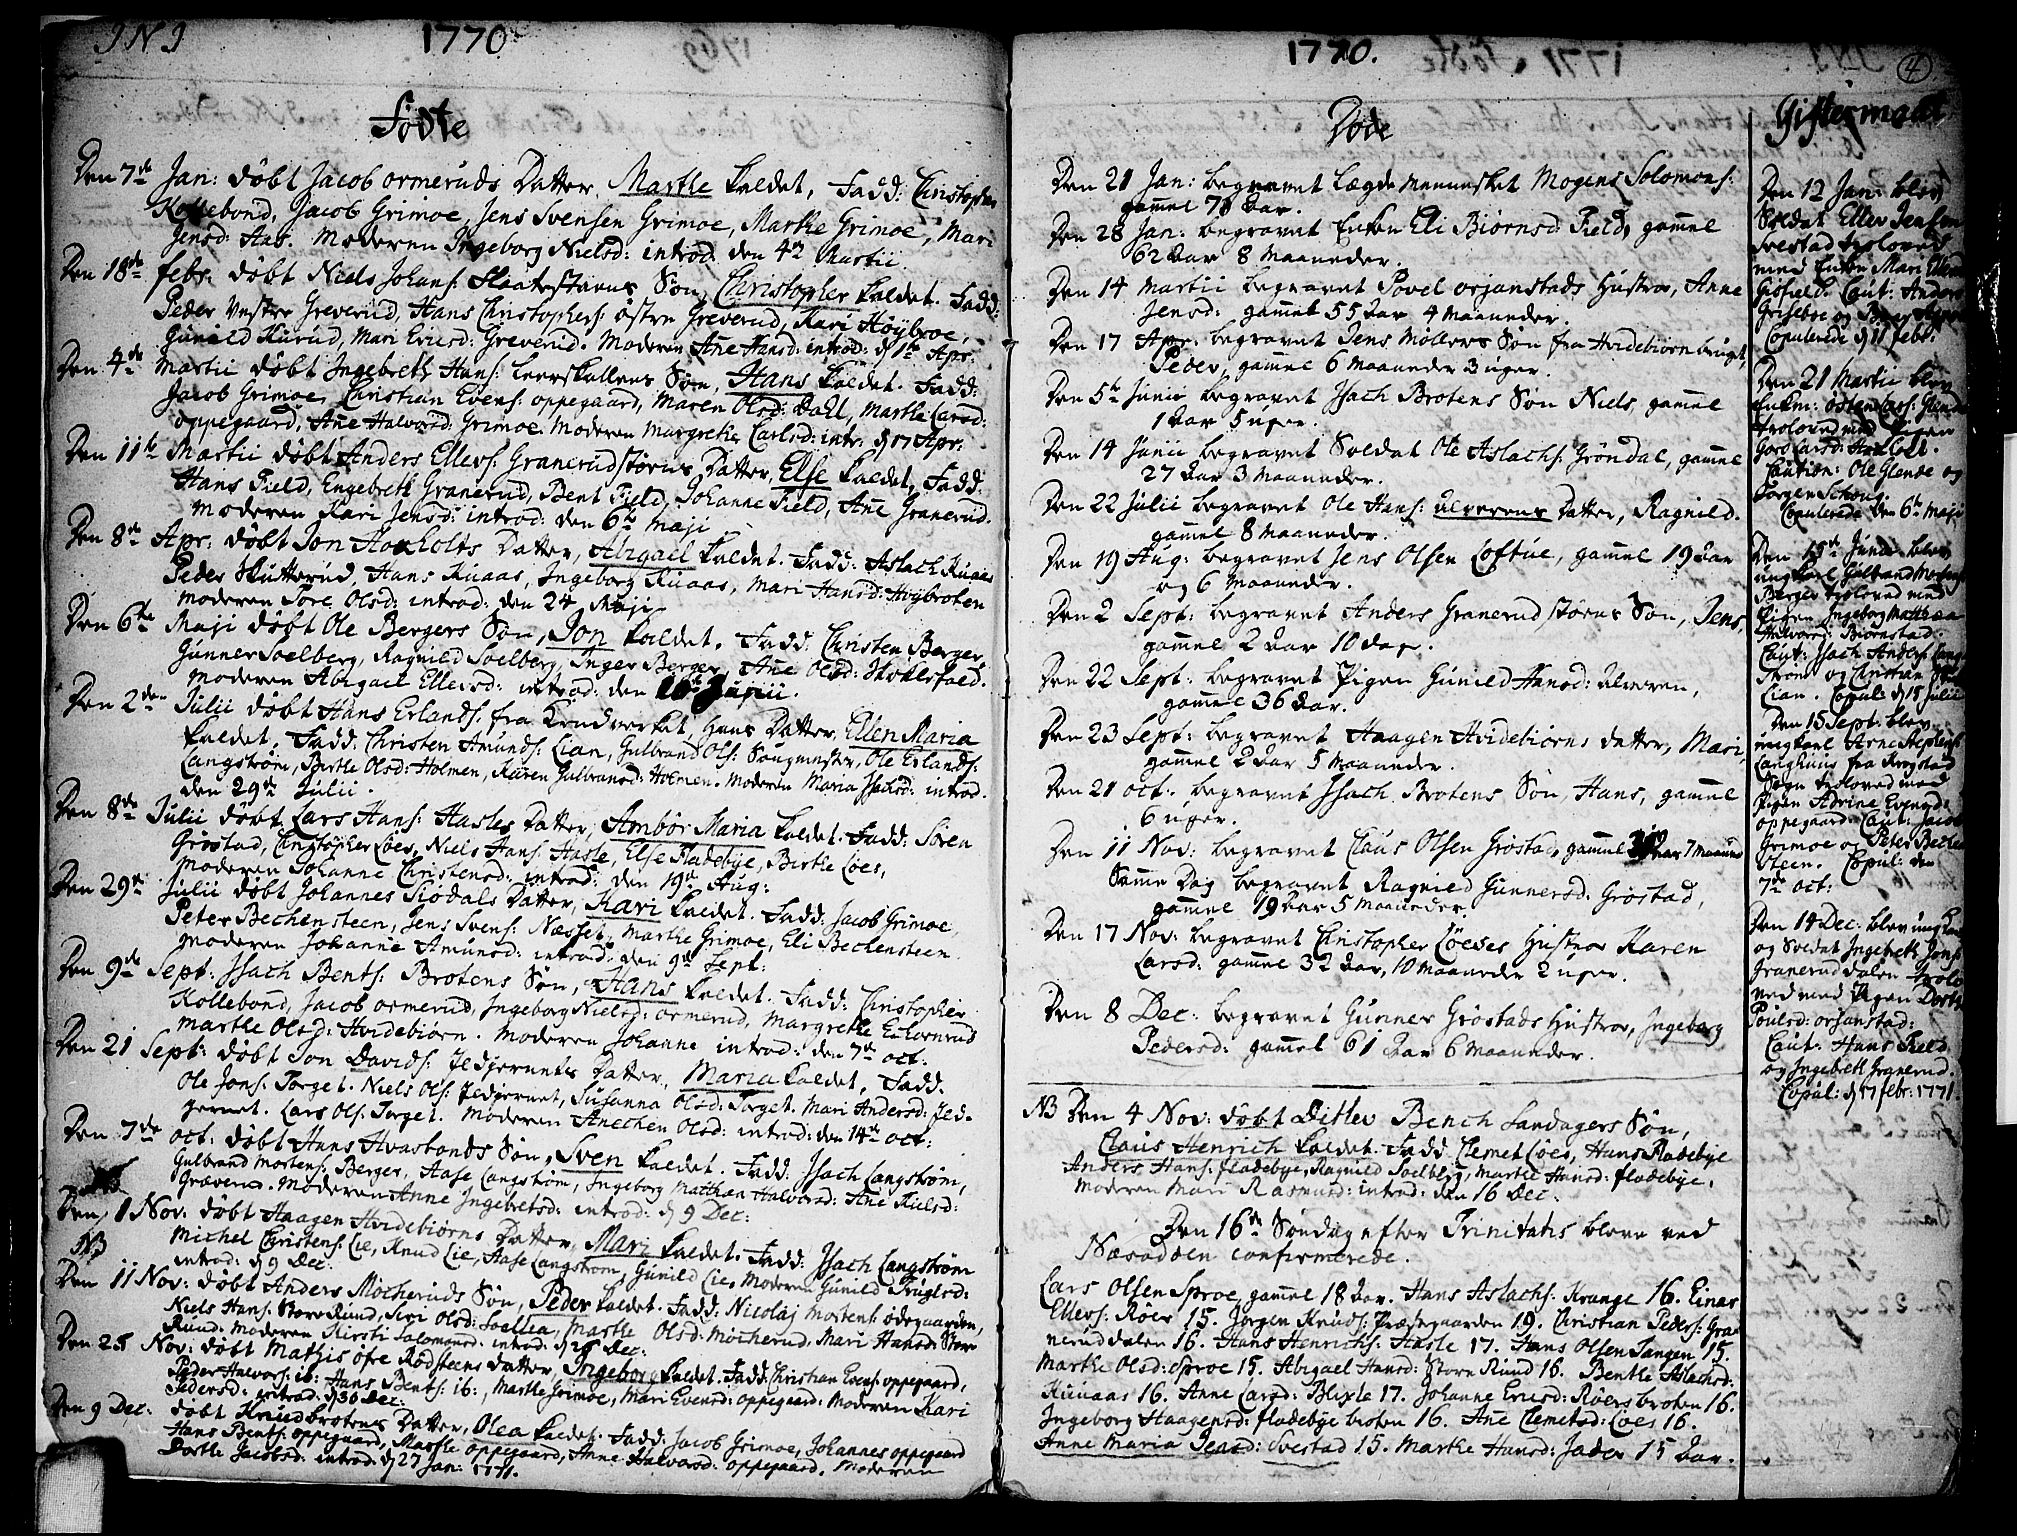 INJ 1770
Fødte
Den 7de Jan: døbt Jacob ormeruds Datter, Marthe kaldet, Fadd: Christopher
Kollebond, Jacob Grimoe, Jens Svensen Grimoe, Marthe Grimoe, Mari
Jensd: Aas. Moderen Ingeborg Nielsd: introd. den 4de Martii.
Den 18de febr. døbt Niels Johans: Slaatestrøms Søn, Christopher kaldet. Fadd:
Peder Vestre Greverud, Hans Christophers: østre Greverud, Kari Høybroe,
Gunild Kurud, Mari Ericsd: Greverud. Moderen Ane Hansd: introd: d 1te Apr:
Den 4de Martii døbt Ingebreth Hans: Leerskallens Søn, Hans kaldet. Fadd:
Jacob Grimoe, Christian Evens: oppegaard, Maren Olsd: Dahl, Marthe Larsd:
oppegaard, Ane Halvorsd: Grimoe. Moderen Margrethe Carlsd: intr: d 17 Apr:
Den 11te Martii døbt Anders Ellevs: Granerudstøens Datter, Else kaldet, Fadd:
Hans Field, Engebreth Granerud, Bent Field, Johanne Field, Ane Granerud.
Moderen Kari Jensd: introd: den 6te Maji
Den 8de Apr. døbt Jon Haxholts Datter, Abigael kaldet. Fadd: Aslach Kuaas
Peder Skutterud, Hans Kuaas, Ingeborg Kuaas, Mari Hansd: Høybroten
Moderen Tore Olsd: introd: den 24 Maji
Den 6te Maji døbt Ole Bergers Søn, Jon kaldet. Fadd: Christen Berger,
Gunner Soelberg, Ragnild Soelberg, Inger Berger, Ane Olsd: Skoklefald.
Moderen Abigael Ellevsd: introd: den Junii.
Den 2den Julii døbt Hans Erlands: fra Krudverket, hans Datter, Ellen Maria
kaldet, Fadd: Christen Amunds: Lian, Gulbrand Ols: Sougmester, Ole Erlands:
Langstrøm, Birthe Olsd: Holmen, Karen Gulbransd: Holmen. Moderen Maria Isachsd: introd.
den 29de Julii.
Den 8de Julii døbt Lars Hans: Hasles Datter, Annbør Maria kaldet. Fadd: Søren
Grøstad, Christopher Løes, Niels Hans: Hasle, Else Fladebye, Birthe Løes,
Moderen Johanne Christensd: introd: den 19de Aug:
Den 29de Julii døbt Johannes Siødals Datter, Kari kaldet. Fadd: Jacob Grimoe,
Peter Bechensteen, Jens Svens: Næsset, Marthe Grimoe, Eli Bechensteen.
Moderen Johanne Amundsd: introd: den 9de Sept:
Den 9de Sept: Isach Bents: Brotens Søn, Hans kaldet. Fadd: Christopher
Kollebond, Jacob ormerud, Ingeborg Nielsd: ormerud, Margrethe Eckornrud
Marthe Olsd: Hvidebiørn. Moderen Johanne introd: den 7de oct:
Den 21 Sept: døbt Jon Davids: Fedjernets Datter, Maria kaldet, Fadd.
Ole Jons: Torget. Niels Ols: Fedjernet, Susanna Olsd: Torget. Mari Andersd: Fed-
jernet. Lars Ols: Torget. Moderen Anechen Olsd: introd: den 14de oct:
Den 7de oct: døbt Hans Hvasbonds Søn, Sven kaldet. Fadd: Isach Langstrøm,
Gulbrand Mortens: Berger, Aase Langstrøm, Ingeborg Mathæa Halvorsd: Ane Kielsd:
Græven. Moderen Anne Ingebretsd: introd: d 9 Dec:
Den 1 Nov: døbt Haagen Hvidebiørns Datter, Mari kaldet. Fadd: Isach Langstrøm
Michel Christens: Lie, Knud Lie, Aase Langstrøm, Gunild Lie, Moderen Gunild Truglsd:
introd: d 9 Dec:
NB
Den 11 Nov: døbt Anders Mocheruds Søn, Peder kaldet. Fadd: Nicolaj Mortens: ødegaarden,
Niels Hans: Store Rund, Siri Olsd: Soellia, Marthe Olsd: Mocherud, Mari Hansd: Store
Rund. Moderen Kirsti Salomonsd: introd: d 26 Dec:
Den 25 Nov: døbt Mathis øfre Rødsteens datter, Ingeborg kaldet. Fadd: Christian Evens: oppegaard,
Peder Halvors: ib: Hans Bents: ib:, Marthe Grimoe, Mari Evensd: oppegaard: Moderen Kari
Pedersd: introd: d 30 Dec:
Den 9 Dec: døbt Knud brotenes Datter, Olea kaldet. Fadd: Jacob Grimoe, Johannes oppegaard
Hans Bents: oppegaard, Marthe oppegaard, Anne Halvorsd: oppegaard, Moderen
Dorthe Jacobsd: introd: d 27 Jan: 1771.
1770.
4
Døde
Den 21 Jan: begravet Lægdemennesket Mogens Solomons:
gammel 78 Aar.
Den 28 Jan: begravet Enken Eli Biørnsd Field, gammel
62 Aar 8 Maaneder.
Den 14 Martii begravet Povel orjanstads Hustroe, Anne
Jensd: gammel 55 Aar 4 Maaneder.
Den 17 Apr: begravet Jens Møllers Søn fra Hvidebiørnbruget,
Peder, gammel 6 Maaneder 3 uger.
Den 5te Junii begravet Isach Brotens Søn Niels, gammel
1 Aar 5 uger.
Den 14 Junii begravet Soldat Ole Aslachs: Grøndal, gammel
27 Aar 3 Maaneder.
Den 22 Julii begravet Ole Hans: ulverens Datter, Ragnild.
gammel 8 Maaneder.
Den 19 Aug: begravet Jens Olsen Loftue, gammel 19 Aar
og 6 Maaneder.
Den 2 Sept: begravet Anders Granerudstøens Søn, Jens,
gammel 2 Aar 10 Dage.
Den 22 Sept: begravet Pigen Gunild Hansd: ulveren,
gammel 36 Aar.
Den 23 Sept: begravet Haagen Hvidebiørns datter, Mari,
gammel 2 Aar 5 Maaneder.
Den 21 oct: begravet Isach Brotens Søn, Hans, gammel
6 uger.
Den 11 Nov: begravet Claus Olsen Grøstad, gammel Aar 7 Maaned
Samme Dag begravet Ragnild Gunnersd: Grøstad,
gammel 19 Aar 5 Maaneder.
Den 17 Nov: begravet Christopher Løeses Hustroe Karen
Larsd: gammel 32 Aar, 10 Maaneder 2 uger.
Den 8 Dec: begravet Gunner Grøstads Hustroe, Ingeborg
Pedersd: gammel 61 Aar 6 Maaneder.
NB Den 4 Nov: døbt Ditlev Bench Landagers Søn,
Claus Henrich kaldet. Fadd Clemet Løes, Hans Fladebye
Anders Hans: fladebye, Ragnild Soelberg, Marthe Hansd: fladebye.
Moderen Mari Rasmusd: introd: den 16 Dec:
Den 16de Søndag efter Trinitatis bleve ved
Næsodden confirmerede.
Lars Olsen Sproe, gammel 18 Aar. Hans Aslachs: Krange 16. Einar
Ellevs: Røer 15. Jørgen Knuds: Præstegaarden 19. Christian Peders: Gra-
neruddalen 16. Hans Henrichs: Hasle 17. Hans Olsen Tangen 15.
Marthe Olsd: Sproe 15. Abigael Hansd: Store Rund 16. Benthe Aslachsd:
Kuuaas 16. Anne Larsd: Blixle 17. Johanne Ericsd: Røersbroten 16.
Ingeborg Haagensd: fladebye broten 16. Ane Clemetsd: Løes 16.
Anne Maria Jensd: Svestad 15. Marthe Hansd: Jader 15 Aar.
Giftermaal
Den 12 Jan: blev
Soldat Ellev Jensen
Svestad trolovet
med Enken Mari
Giøfield. Caut: Anders
Griseboe og
Copulerede d 11 febr.
Den 21 Martii blev
Enkm: østen Lars: Glende
trolovet med Pigen
Goro Larsd: Haxholt.
Caution: Ole Glende og
Jørgen Schoug.
Copulerede den 6te Maji
Den 15de Junii blev
ungkarl Gulbrand Mortens:
Berger trolovet med
Pigen Ingeborg Mathæa
Halvorsd: Biørnstad.
Caut: Isach Anders: Lang-
strøm og Christian
Lian. Copul: d 15 Julii
Den 15 Sept: blev
ungkarl Arne Stephens:
Langhuus fra Krogstad
Sogn trolovet med
Pigen Adrine Evensd:
oppegaard. Caut: Jacob
Grimoe og Peter Bechen-
steen. Copul: den
7de oct:
Den 14 Dec: blev ungkarl
og Soldat Ingebreth Jons:
Graneruddalen trolo-
vet med Pigen Dorthe
Poulsd: orjanstad:
Caut: Hans Field
og Ingebreth Granerud.
Copul: d 17 febr: 1771.